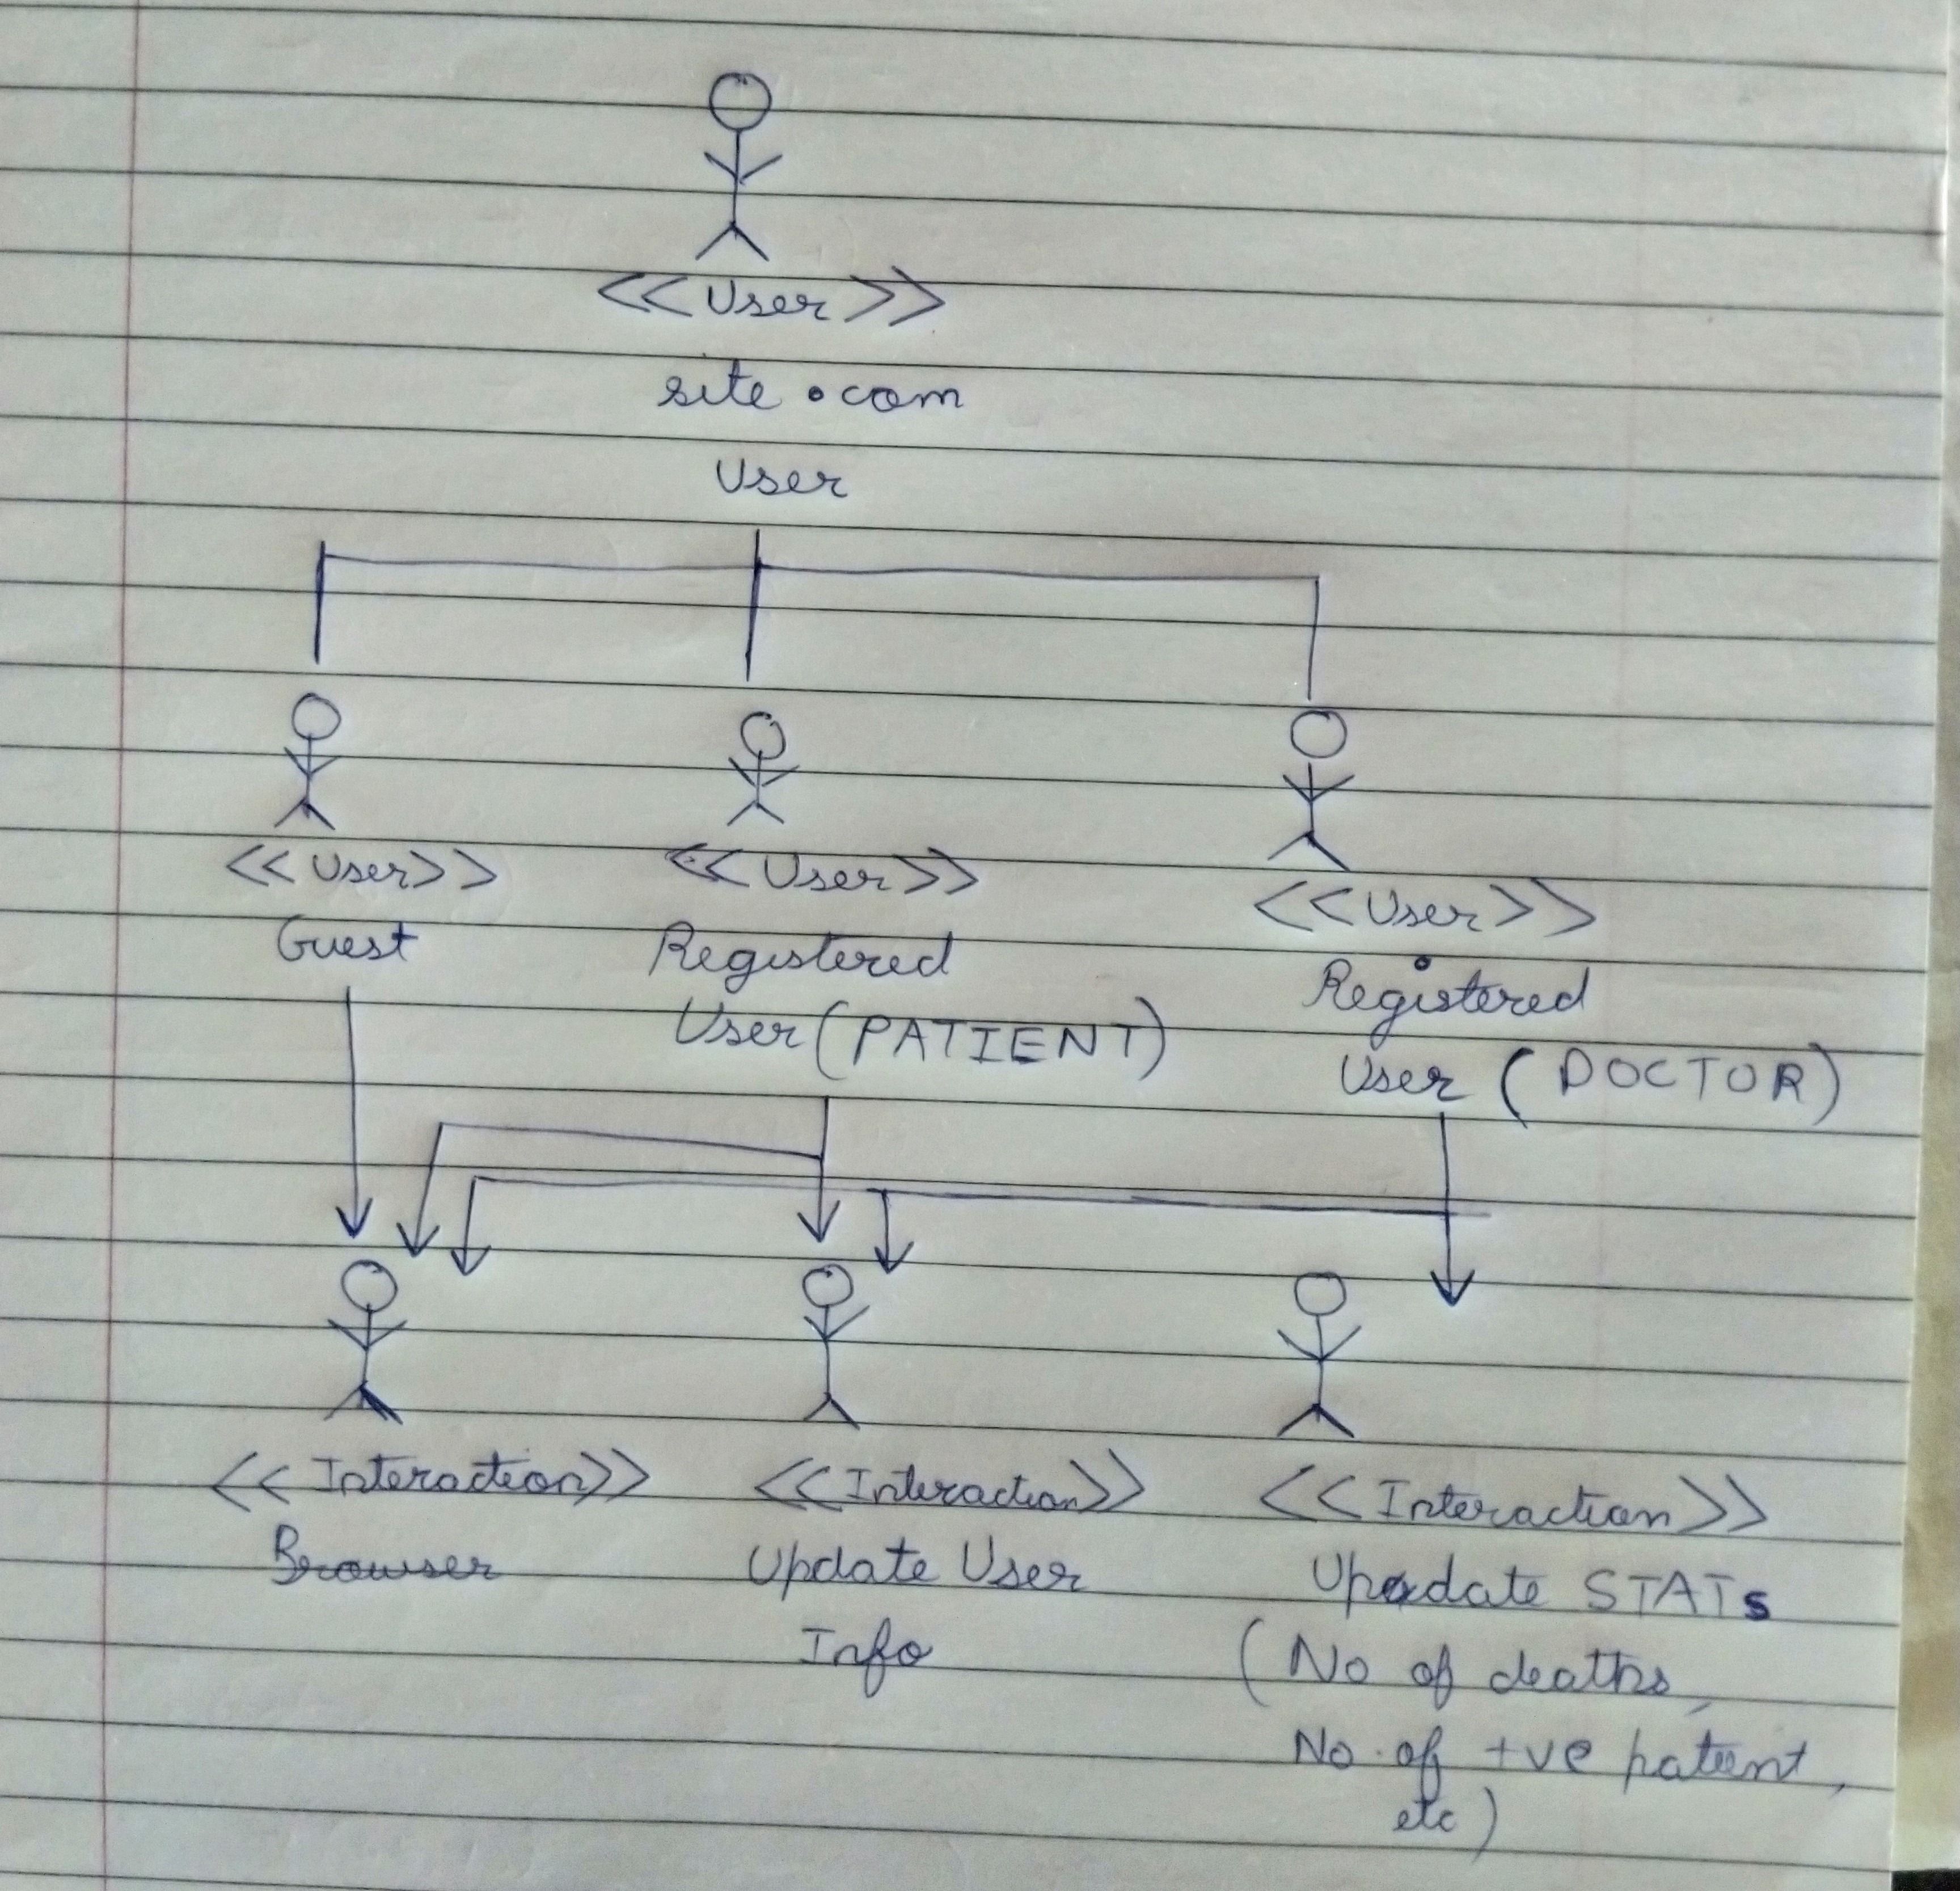 <<User>>
site.com
User
<<User>>
Guest
<<User>>
Registered
User (PATIENT)
<<User>>
Registered
User (DOCTOR)
<<Interaction>>
Browser
<<Interaction>>
Update User
Info
<<Interaction>>
Update STATs
(No of deaths,
No. of +ve patient,
etc)